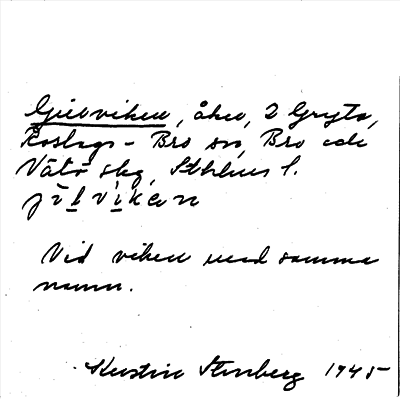 Gillviken, åker, 2 Gryta,
Roslags-Bro sn, Bro och
Vätö skg, Sthlms l.
jilviken
Vid viken med samma
namn.
Kerstin Stenberg 1945